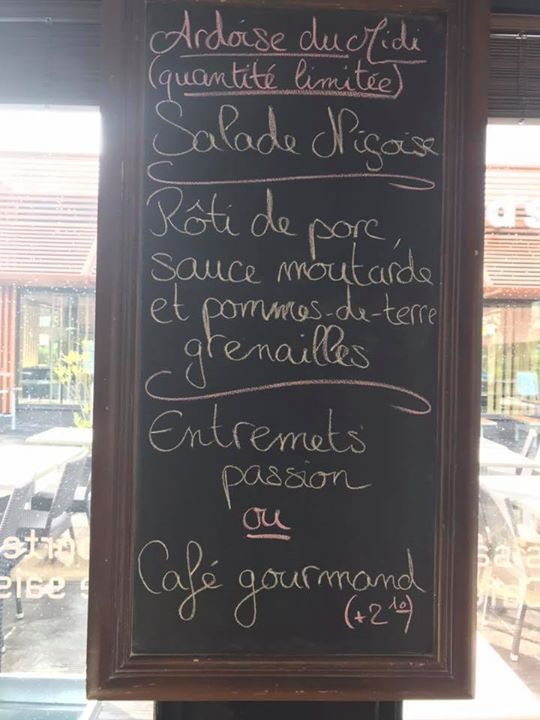 Ardoise du Midi
(quantité limitée)
Salade Niçoise
Rôti de porc,
sauce moutarde
et pommes-de-terre
grenailles
Entremets
passion
ou
Café gourmand
(+2€10)